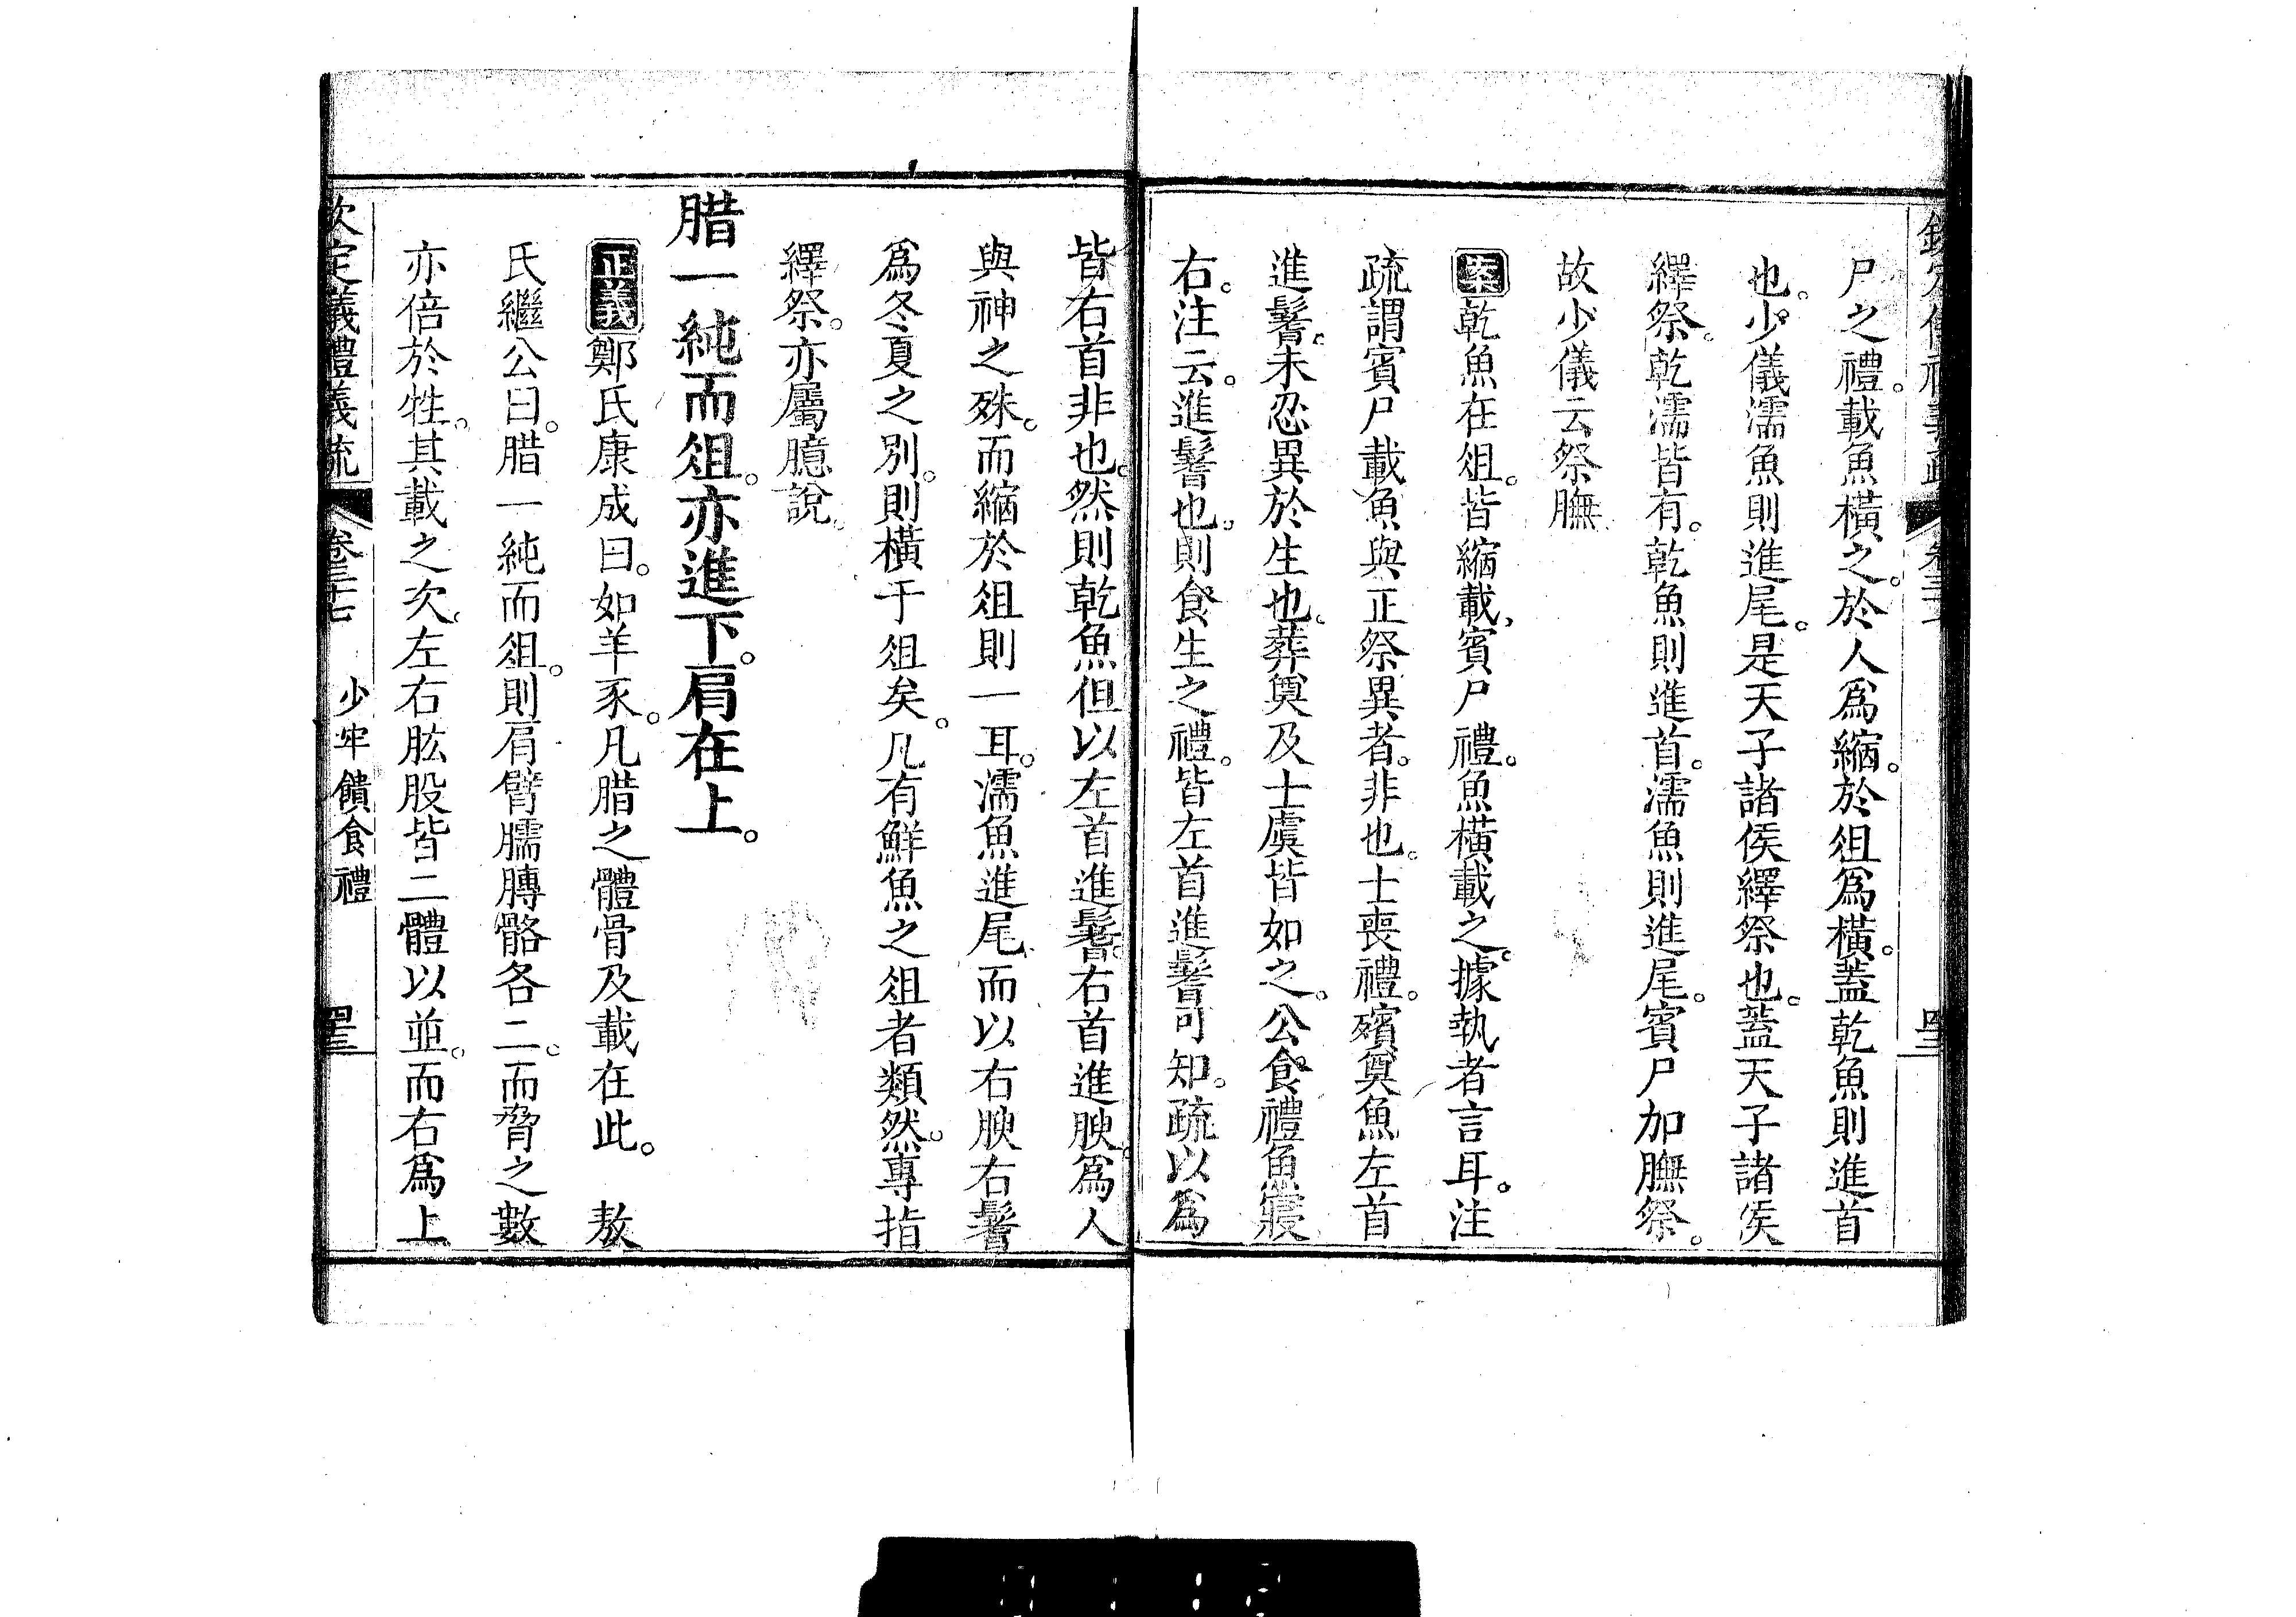 尸之禮。載魚橫之。於人爲縮。於俎爲橫。蓋乾魚則進首
也。少儀濡魚則進尾。是天子諸侯繹祭也。蓋天子諸侯
繹祭。乾濡皆有。乾魚則進首。濡魚則進尾。賓尸加膴祭。
故少儀云祭膴
案乾魚在俎。皆縮載。賓尸禮。魚橫載之。據執者言耳。注
疏謂賓尸載魚與正祭異者。非也。士喪禮。殯奠魚左首
進鬐。未忍異於生也。葬奠及士虞皆如之。公食禮魚寢
右。注云。進鬐也。則食生之禮。皆左首進鬐可知。疏以爲
皆右首非也。然則乾魚但以左首進鬐。右首進腴。爲人
與神之殊。而縮於俎則一耳。濡魚進尾。而以右腴右鬐
爲冬夏之別。則橫于俎矣。凡有鮮魚之俎者類然。專指
繹祭。亦屬臆說。
腊一純而俎。亦進下。肩在上。
正義鄭氏康成曰。如羊豕。凡腊之體骨及載在此。 敖
氏繼公曰。腊一純而俎。則肩臂臑膊骼各二。而脅之數
亦倍於牲。其載之次。左右肱股皆二體以並。而右爲上
欽定儀禮義疏 卷三十七 少牢饋食禮 四三